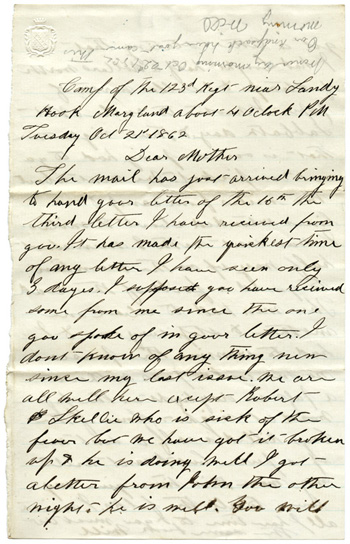 Camp of the 123d Regt near Sandy
Hook Maryland about 4 Oclock PM
Tuesday Oct 21st 1862
Dear Mother
The mail has just arrived bringing
to hand your letter of the 16th the
third letter I have recieved from
you. It has made the quickest time
of any letter I have seen only
3 days. I suppose you have recieved
some from me since the one
you spoke of in your letter. I
dont know of any thing new
since my last issue. We are
all well here except Robert
Skellie who is sick of the
fever but we have got it broken
up & he is doing well I got
a letter from John the other
night & he is well. You will
morning